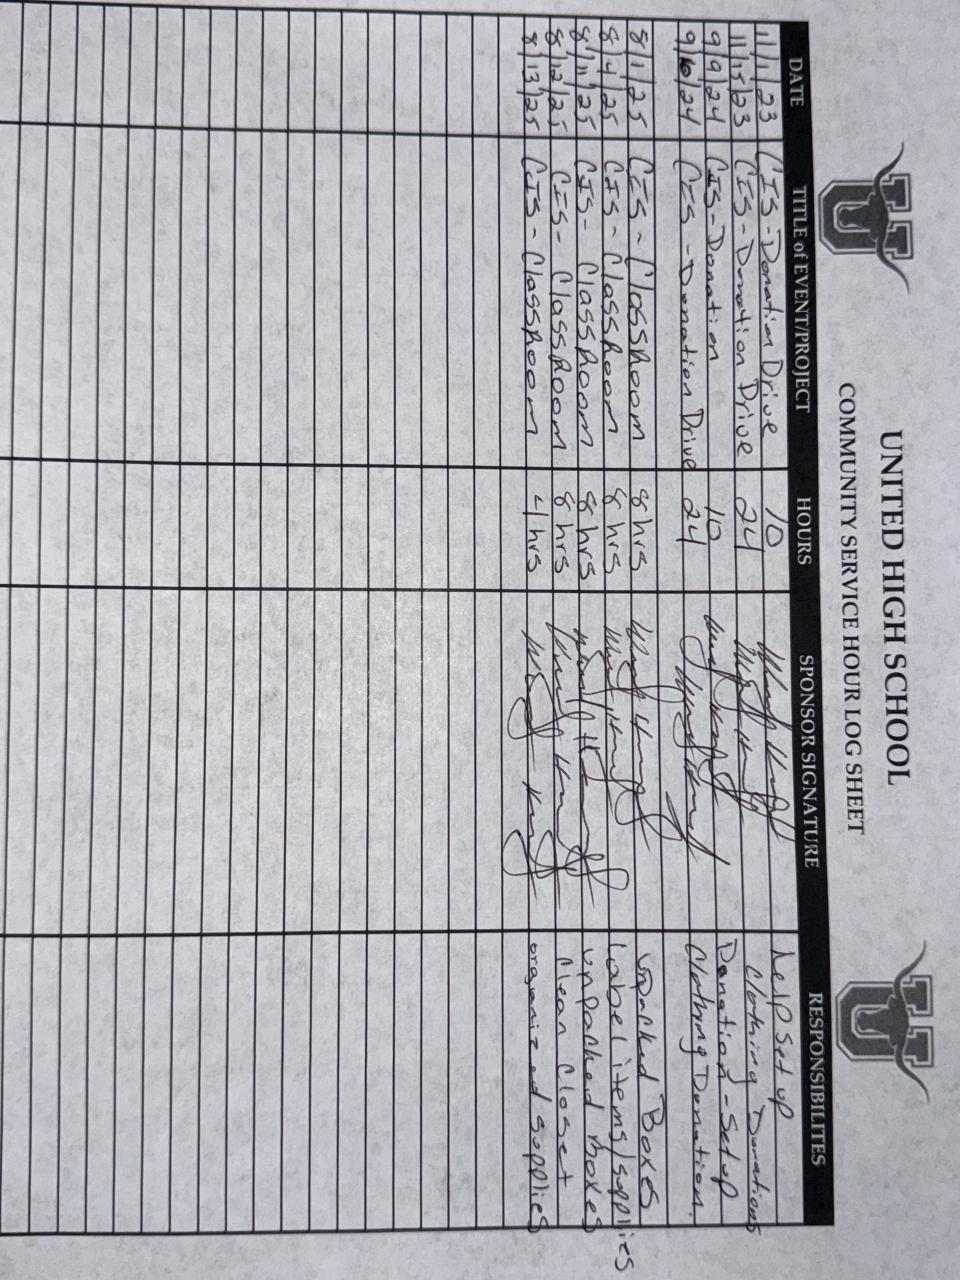 UNITED HIGH SCHOOL
COMMUNITY SERVICE HOUR LOG SHEET
DATE TITLE of EVENT/PROJECT HOURS SPONSOR SIGNATURE RESPONSIBILITES
1/1/23 CIS-Donation Drive 10 help set up
11/15/23 CIS-Donation Drive 24 Clothing Donations
9/9/24 CIS-Donation 10 Donation-Setup
9/10/24 CIS-Donation Drive 24 Clothing Donation
8/1/25 CIS-ClassRoom 8 hrs Unpacked Boxes
8/4/25 CIS-ClassRoom 8 hrs Label items/supplies
8/11/25 CIS-ClassRoom 8 hrs unpacked Boxes
8/12/25 CIS-ClassRoom 8 hrs Clean Closet
8/13/25 CIS-ClassRoom 4 hrs organized supplies